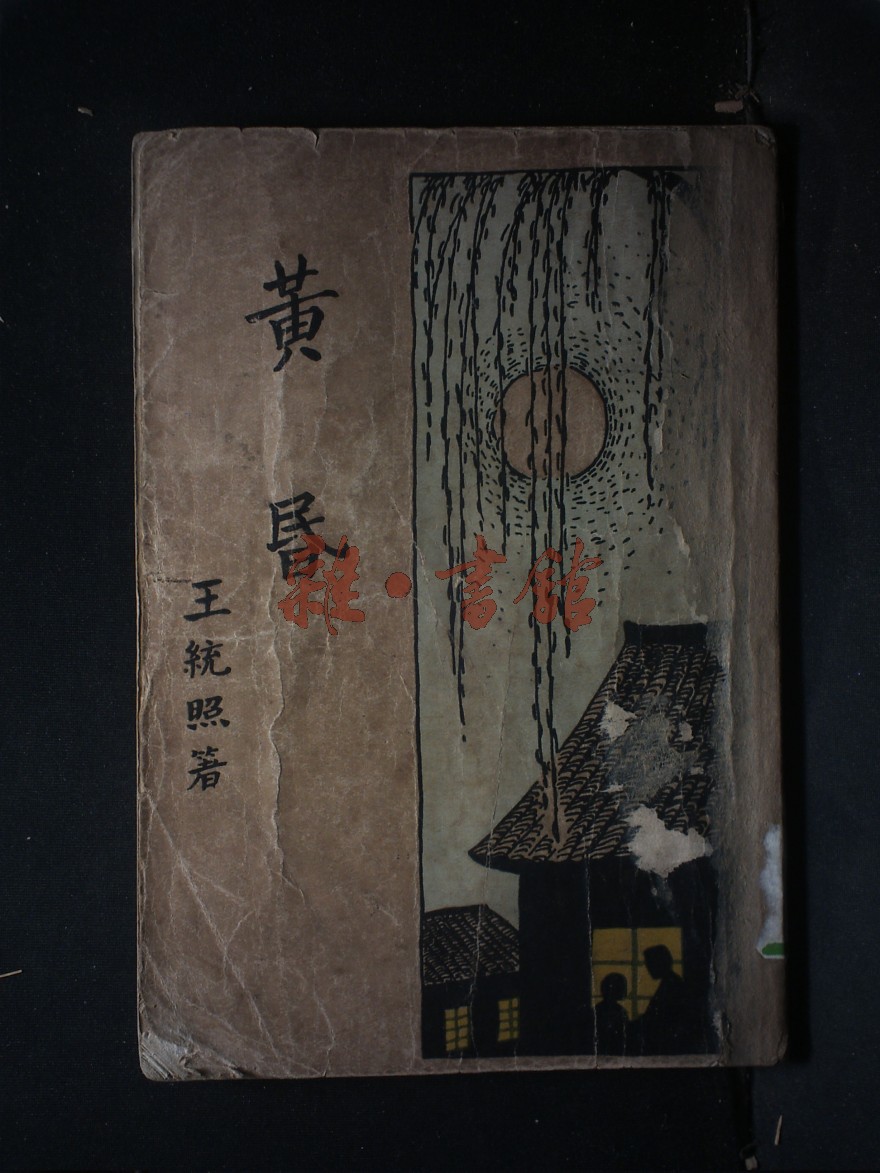 黃昬
王統照著
雜·書館